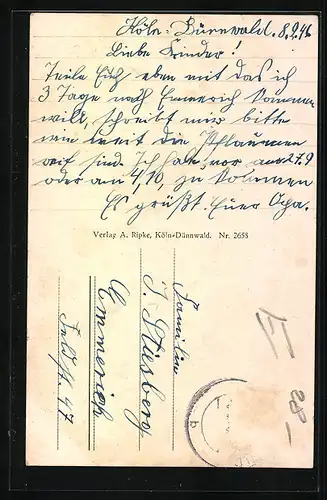 Köln-Dünnwald. 8.9.46
Liebe Kinder!
Teile Euch eben mit das ich
3 Tage nach Emmerich kommen
will, schreibt mir bitte
wie weit die Pflaumen
reif sind. Ich habe vor am 27.9
oder am 4/10, zu kommen
Es grüßt Euer Opa.
Verlag A. Ripke, Köln-Dünnwald. Nr. 2658
Familie
J. Stüsberg
Emmerich
Feldstr. 47
28-